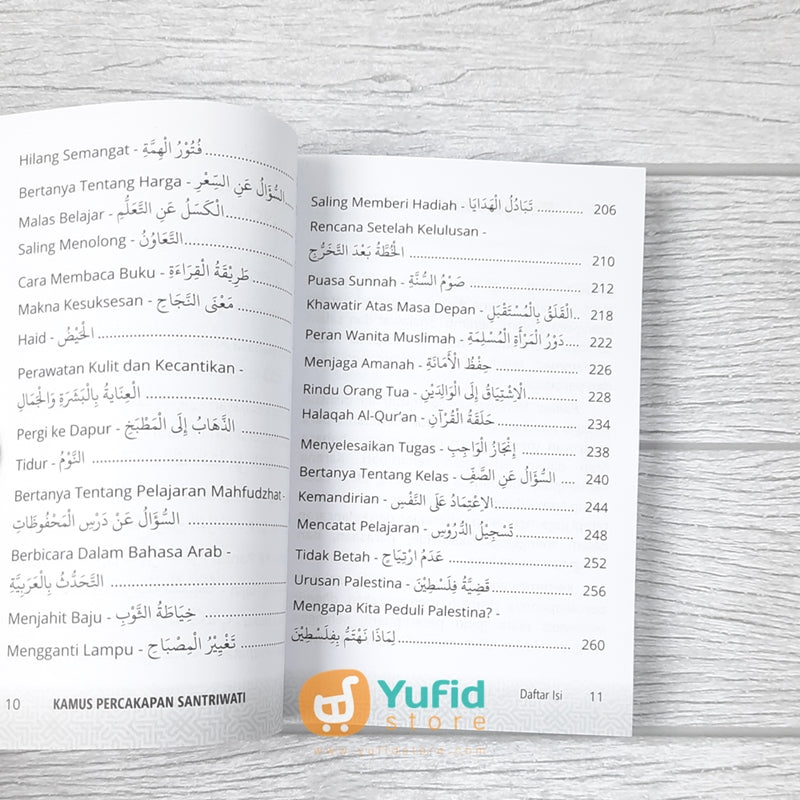 Hilang Semangat - فُتُوْرُ الْهِمَّةِ
Bertanya Tentang Harga - السُّؤَالُ عَنِ السَّعْرِ
Malas Belajar - الْكَسَلُ عَنِ التَّعَلُّمِ
Saling Menolong - التَّعَاوُنُ
Cara Membaca Buku - طَرِيْقَةُ الْقِرَاءَةِ
Makna Kesuksesan - مَعْنَى النَّجَاحِ
Haid - الْحَيْضُ
Perawatan Kulit dan Kecantikan -
الْعِنَايَةُ بِالْبَشَرَةِ وَالْجَمَالِ
Pergi ke Dapur - الذَّهَابُ إِلَى الْمَطْبَخِ
Tidur - النَّوْمُ
Bertanya Tentang Pelajaran Mahfudzhat -
السُّؤَالُ عَنْ دَرْسِ الْمَحْفُوظَاتِ
Berbicara Dalam Bahasa Arab -
التَّحَدُّثُ بِالْعَرَبِيَّةِ
Menjahit Baju - خِيَاطَةُ الثَّوْبِ
Mengganti Lampu - تَغْيِيْرُ الْمِصْبَاحِ
10 KAMUS PERCAKAPAN SANTRIWATI
Saling Memberi Hadiah - تَبَادُلُ الْهَدَايَا 206
Rencana Setelah Kelulusan -
الْخُطَّةُ بَعْدَ التَّخَرُّجِ 210
Puasa Sunnah - صَوْمُ السُّنَّةِ 212
Khawatir Atas Masa Depan - الْقَلَقُ بِالْمُسْتَقْبَلِ 218
Peran Wanita Muslimah - دَوْرُ الْمَرْأَةِ الْمُسْلِمَةِ 222
Menjaga Amanah - حِفْظُ الْأَمَانَةِ 226
Rindu Orang Tua - الْاِشْتِيَاقُ إِلَى الْوَالِدَيْنِ 228
Halaqah Al-Qur'an - حَلَقَةُ الْقُرْآنِ 234
Menyelesaikan Tugas - إِنْجَازُ الْوَاجِبِ 238
Bertanya Tentang Kelas - السُّؤَالُ عَنِ الصَّفِّ 240
Kemandirian - الاِعْتِمَادُ عَلَى النَّفْسِ 244
Mencatat Pelajaran - تَسْجِيْلُ الدُّرُوْسِ 248
Tidak Betah - عَدَمُ ارْتِيَاحٍ 252
Urusan Palestina - قَضِيَّةُ فِلَسْطِيْنَ 256
Mengapa Kita Peduli Palestina? -
لِمَاذَا نَهْتَمُّ بِفِلَسْطِيْنَ 260
Daftar Isi 11
Yufid
store
www.yufidstore.com